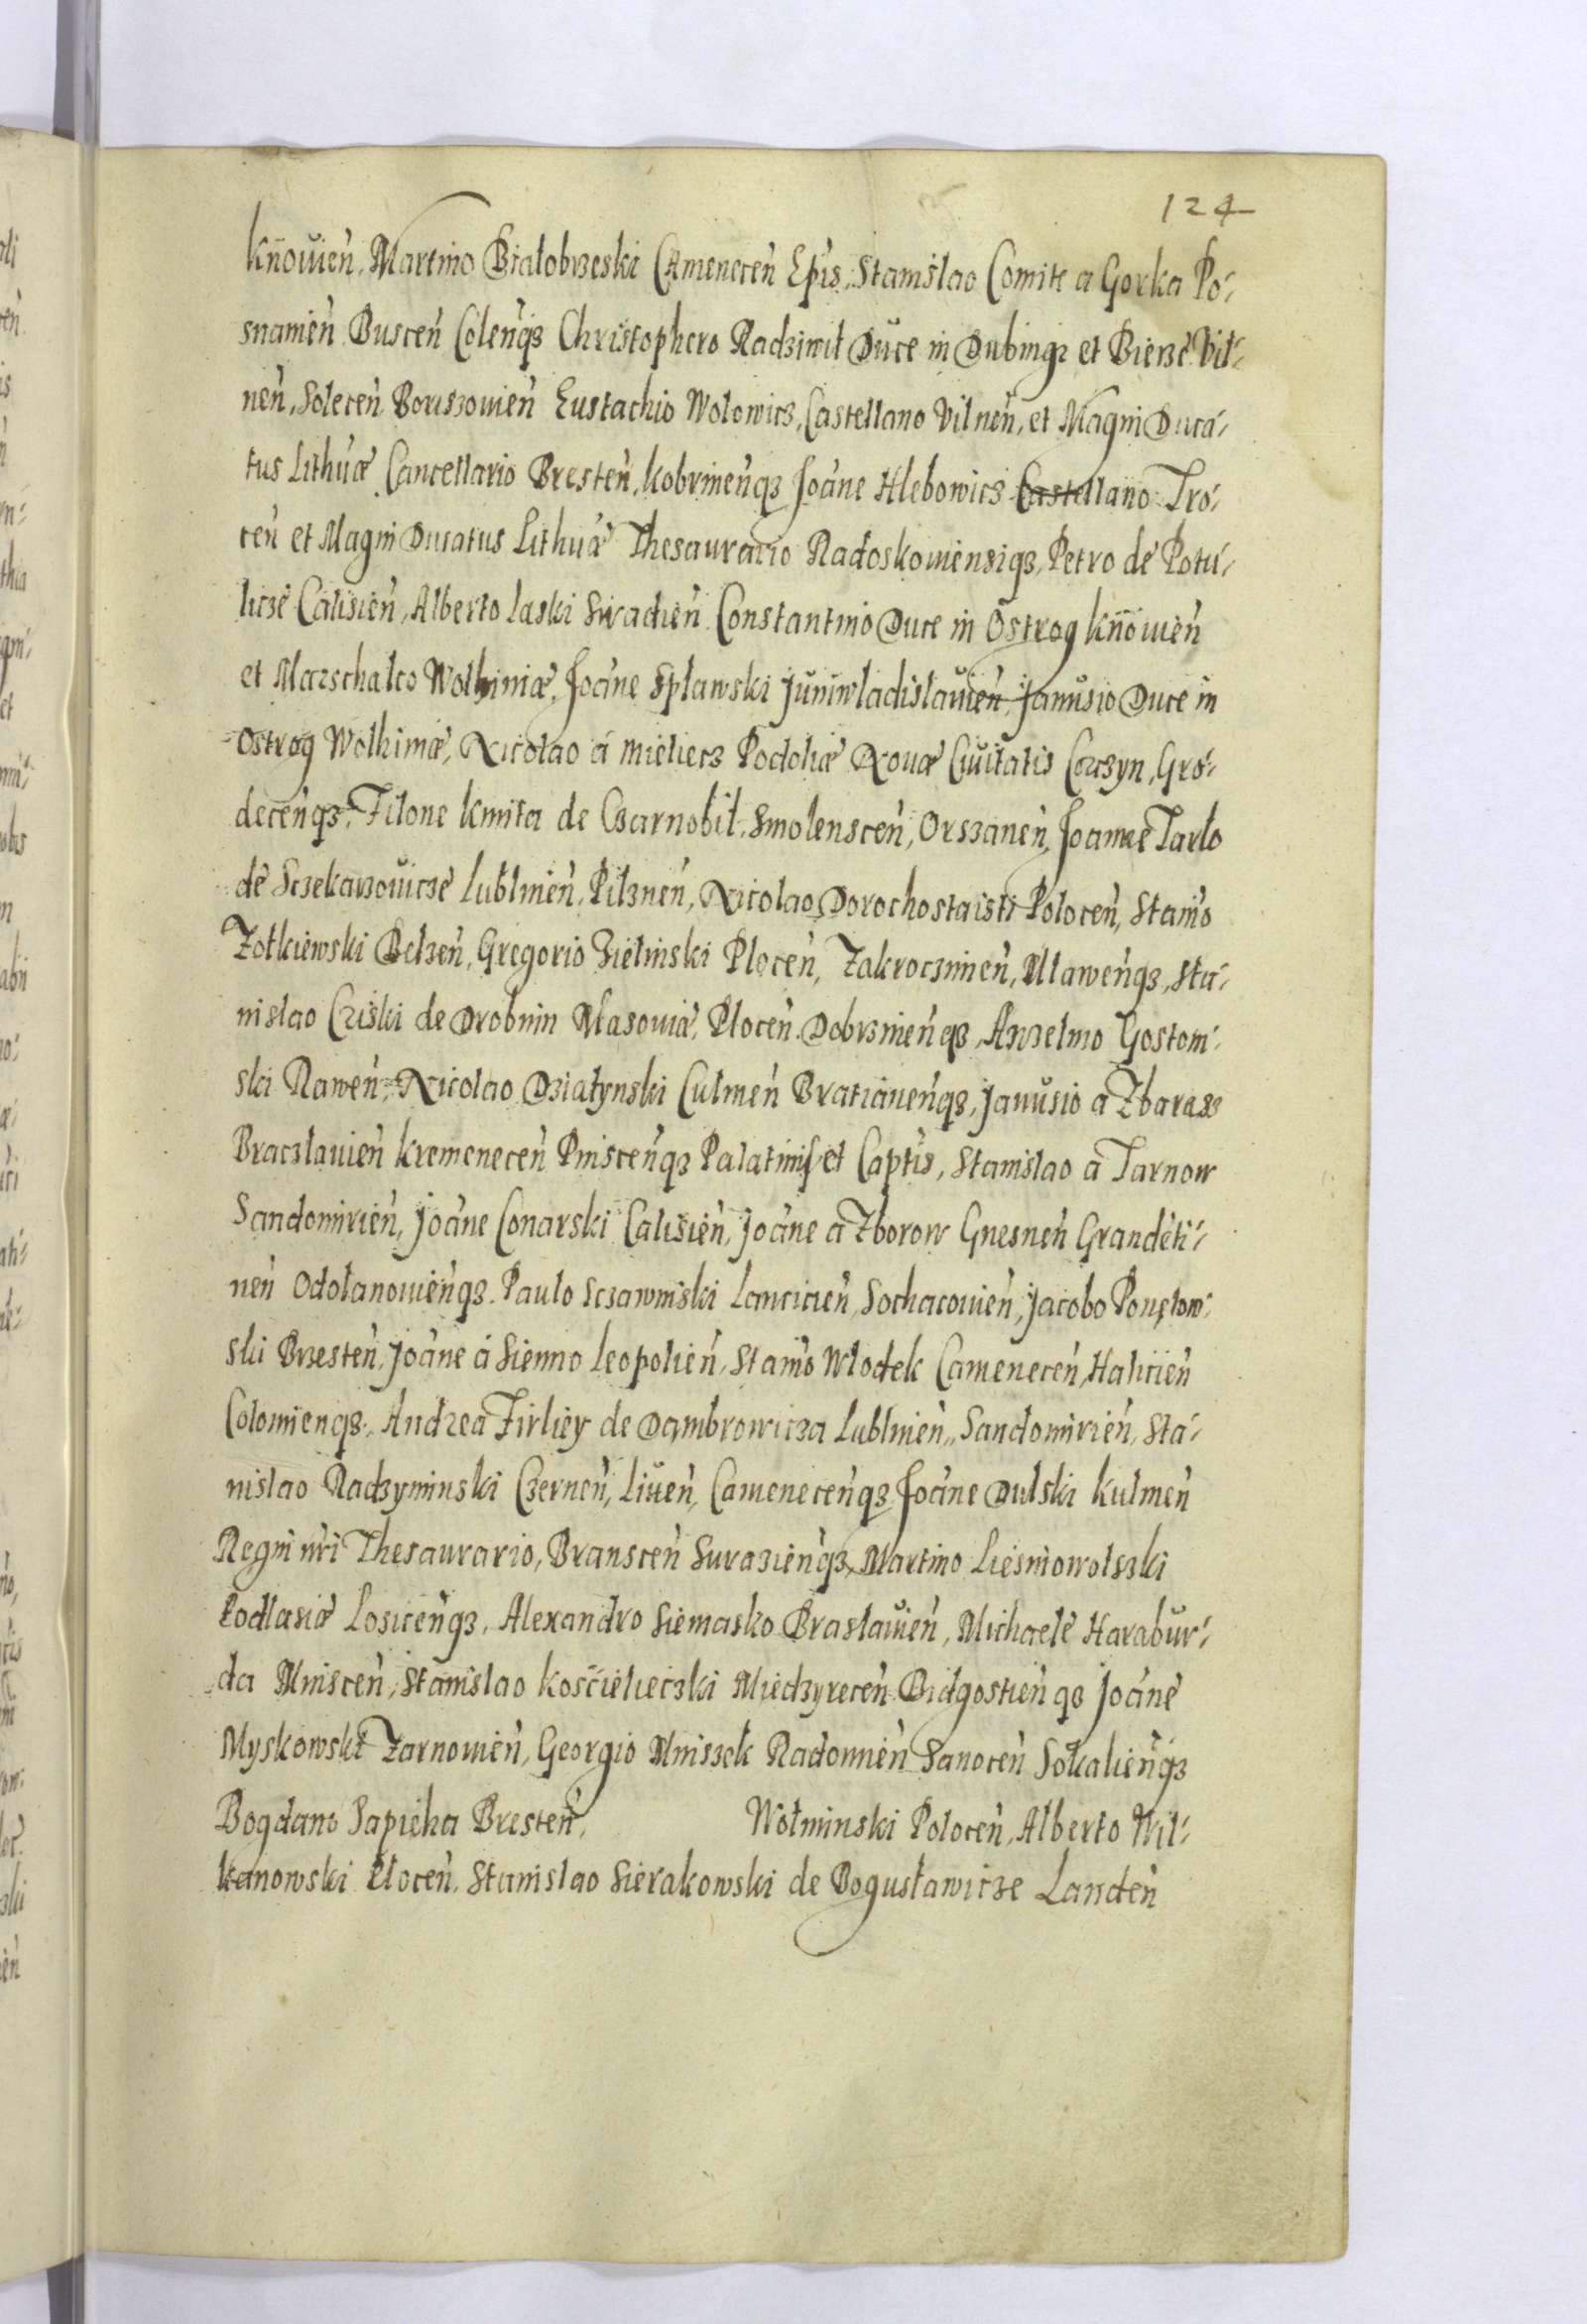 124
Kn̄ouien̄, Martino Białobrzeski Camenecen̄ Ep̄is, Stanislao Comite a Gorka Po-
snanien̄ Buscen̄ Colen̄qꝫ Christophero Radziwił Duce in Dubingi et Bierże Vil-
nen̄, Solecen̄ Boriszouien̄ Eustachio Wolowicz, Castellano Vilnen̄, et Magni Duca-
tus Lithuæ Cancellario Bresten̄, Kobrinen̄qꝫ Joāne Hlebowicz Castellano Tro-
cen̄ et Magni Ducatus Lithuæ Thesaurario Radoskouiensiqꝫ, Petro de Potu-
licze Calisien̄, Alberto Laski Siradien̄ Constantino Duce in Ostrog Kn̄ouien̄
et Marschalco Wolhiniæ, Joāne Spławski Juniwladislauien̄, Janusio Duce in
Ostrog Wolhiniæ, Nicolao á Mieliecz Podoliæ Nouæ Ciuitatis Corzyn, Gro-
decen̄qꝫ, Filone Kmita de Czarnobil, Smolenscen̄, Orszanen̄, Joanne Tarlo
de Sczekarzouicze Lublinen̄, Pilznen̄, Nicolao Dorochostaisti Polocen̄, Stan̄o
Żołkiewski Belzen̄, Gregorio Zielinski Plocen̄, Zakroczimen̄, Mlawen̄qꝫ, Sta-
nislao Cziski de Drobnin Masouiæ, Plocen̄ Dobrzinen̄qꝫ, Anzelmo Gostom-
ski Rawen̄, Nicolao Działynski Culmen̄ Bratianen̄qꝫ, Janusio a Zbarasz
Braczlauien̄ Kremenecen̄ Pinscen̄qꝫ Palatinis et Capt̄is, Stanislao a Tarnow
Sandomirien̄, Joāne Conarski Calisien̄, Joāne a Zborow Gnesnen̄ Grandēti-
nen̄ Odolanouien̄qꝫ. Paulo Sczawinski Lancicien̄, Sochacouien̄, Jacobo Ponętow-
ski Brzesten̄, Joāne á Sienno Leopolien̄, Stan̄o Włodek Camenecen̄, Halicien̄
Colomienqꝫ, Andrea Firliey de Dąmbrowicza Lublinen̄, Sandomirien̄, Sta-
nislao Radzyminski Czernen̄, Liuen̄, Camenecen̄qꝫ Joāne Dulski Kulmen̄
Regni nr̄i Thesaurario, Branscen̄ Surazien̄qꝫ, Martino Liesniowolszki
Podlasiæ Losicen̄qꝫ, Alexandro Siemasko Braslauien̄, Michaele Harabur-
da Minscen̄, Stanislao Koścíelieczki Miedzyrecen̄ Bidgostien̄qꝫ Joāne
Myskowski Żarnouien̄, Georgio Mniszek Radomien̄ Sanocen̄ Sokalien̄qꝫ
Bogdano Sapieha Bresten̄, Wołminski Polocen̄, Alberto Wil-
kanowski Plocen̄, Stanislao Sierakowski de Bogusławicze Landen̄